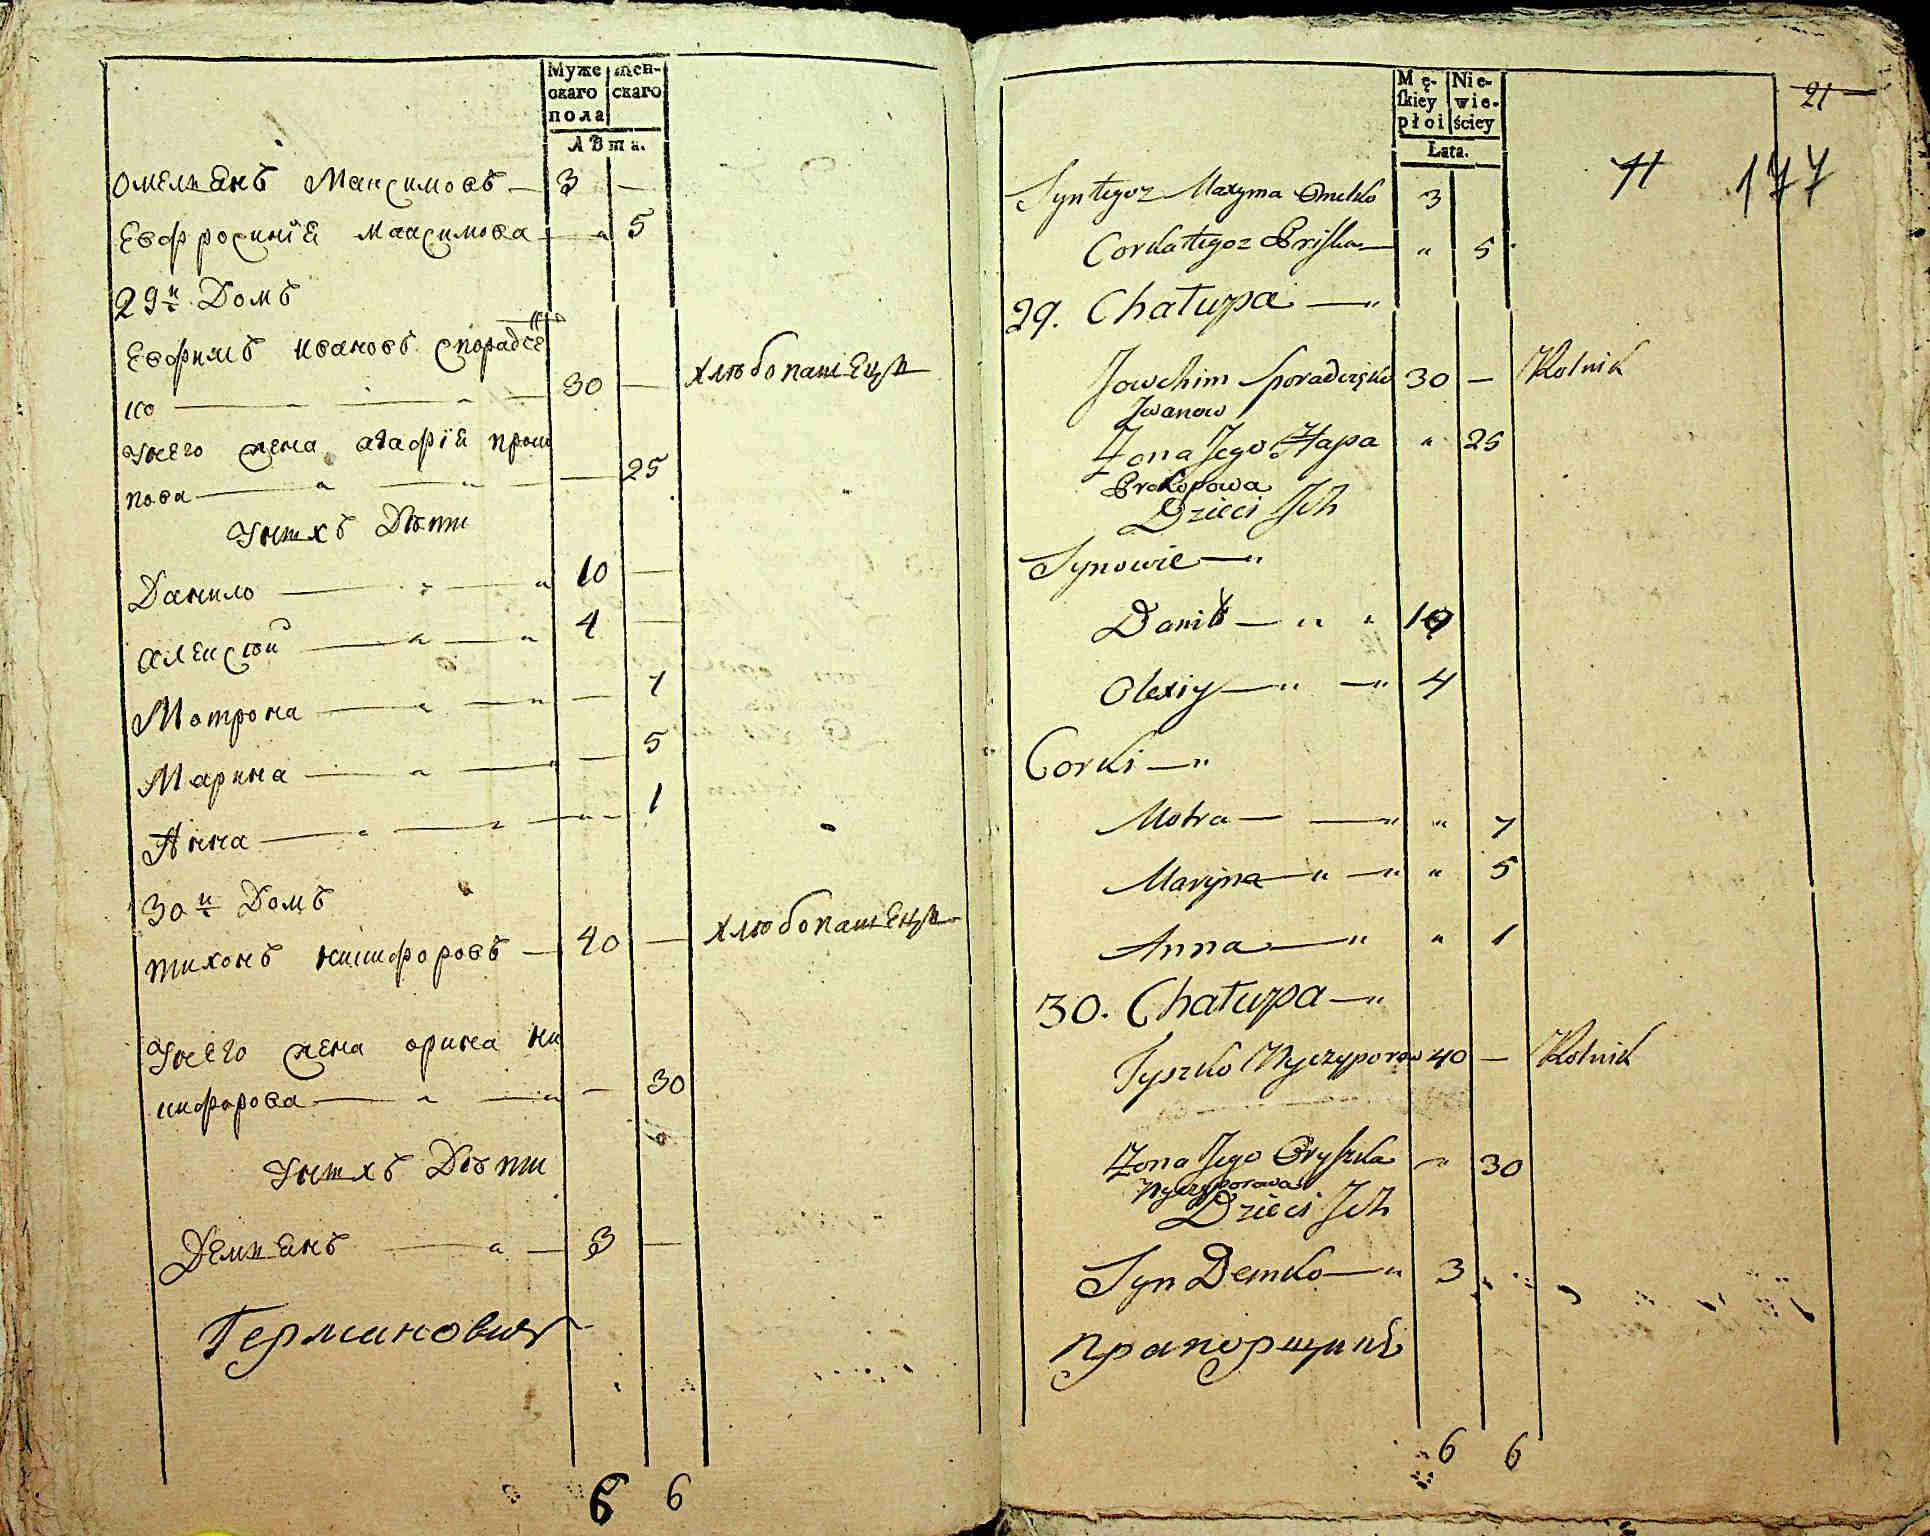 Муже
скаго
пола
жен-
скаго
Лѣта.
Омелианъ Максимовъ — 3 —
Евфросиніа Максимова — " 5
29й Домъ
Евфимъ Ивановъ Спорадче
ко — 30 — хлѣбопашецъ
у него жена агафія проко
пова — " — 25
у нихъ Дѣти
Данило — " 10 —
Алексѣй — " 4 —
Мотрона — " — 7
Марина — " — 5
Анна — " — 1
30й Домъ
тихонъ никифоровъ — 40 — хлѣбопашецъ
у него жена орина ни
кифорова — " — 30
у нихъ Дѣти
Демианъ — " — 3 —
Германовичъ
6 6
Mę-
skiey
płci
Nie-
wie-
ściey
Lata.
21
11 177
Syn tegoz Maxyma Omelko 3
Corka tegoz Priska — " 5
29. Chałupa — "
Jowchim Sporadczenko 30 — Rolnik
Iwanow
Żona Jego Hapa " 25
Prokopowa
Dzieci Ich
Synowie — "
Danił — " " 10
Olexiy — " — " 4
Corki — "
Motra — — " " 7
Maryna — " — " " 5
Anna — " " 1
30. Chałupa — "
Tyszko Nyczyporow 40 — Rolnik
Żona Jego Oryszka — " 30
Nyczyporowa
Dzieci Ich
Syn Demko — " 3 "
прапорщикъ
6 6